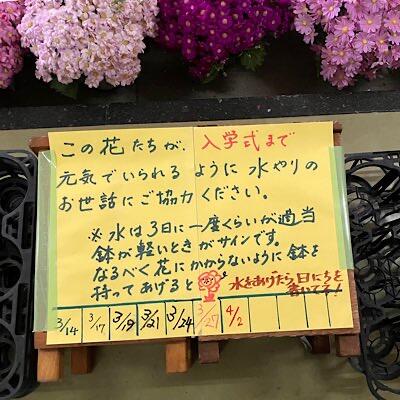 この花たちが、入学式まで
元気でいられるように水やりの
お世話にご協力ください。
※水は3日に一度くらいが適当
鉢が軽いときがサインです。
なるべく花にかからないように鉢を
持ってあげると
水をあげたら日にちを
書いてネ!
3/14 3/17 3/19 3/21 3/24 3/27 4/2